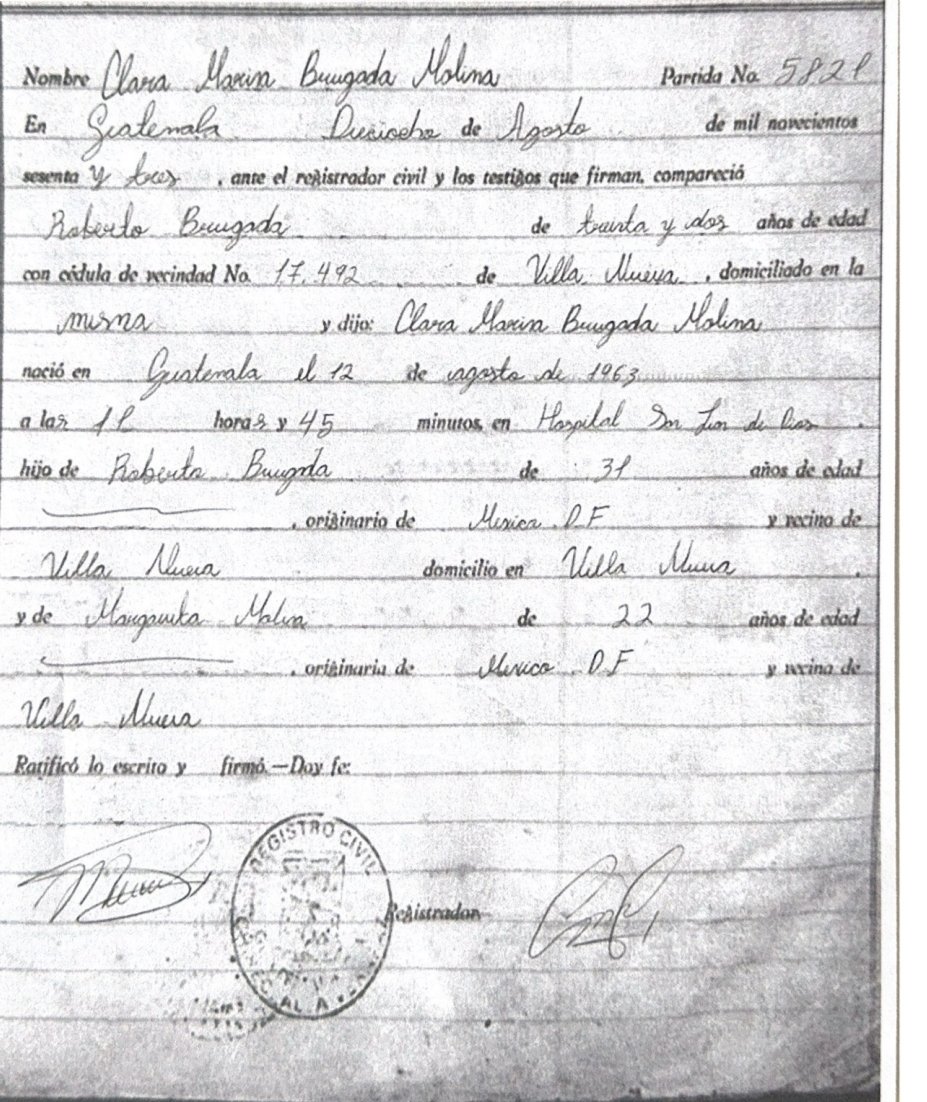 Nombre Clara Marina Brugada Molina Partida No. 5821
En Guatemala Dieciocho de Agosto de mil novecientos
sesenta y tres , ante el registrador civil y los testigos que firman, compareció
Roberto Brugada de treinta y dos años de edad
con cédula de vecindad No. 17.492 de Villa Nueva , domiciliado en la
misma y dijo: Clara Marina Brugada Molina
nació en Guatemala el 12 de agosto de 1963
a las horas y 45 minutos, en Hospital San Juan de Dios .
hijo de Roberto Brugada de 31 años de edad
, originario de Mexico D.F y vecino de
Villa Nueva domicilio en Villa Nueva .
y de Margarita Molina de 22 años de edad
, originaria de Mexico D.F y vecina de
Villa Nueva
Ratificó lo escrito y firmó.—Doy fe:
REGISTRO CIVIL
Registrador